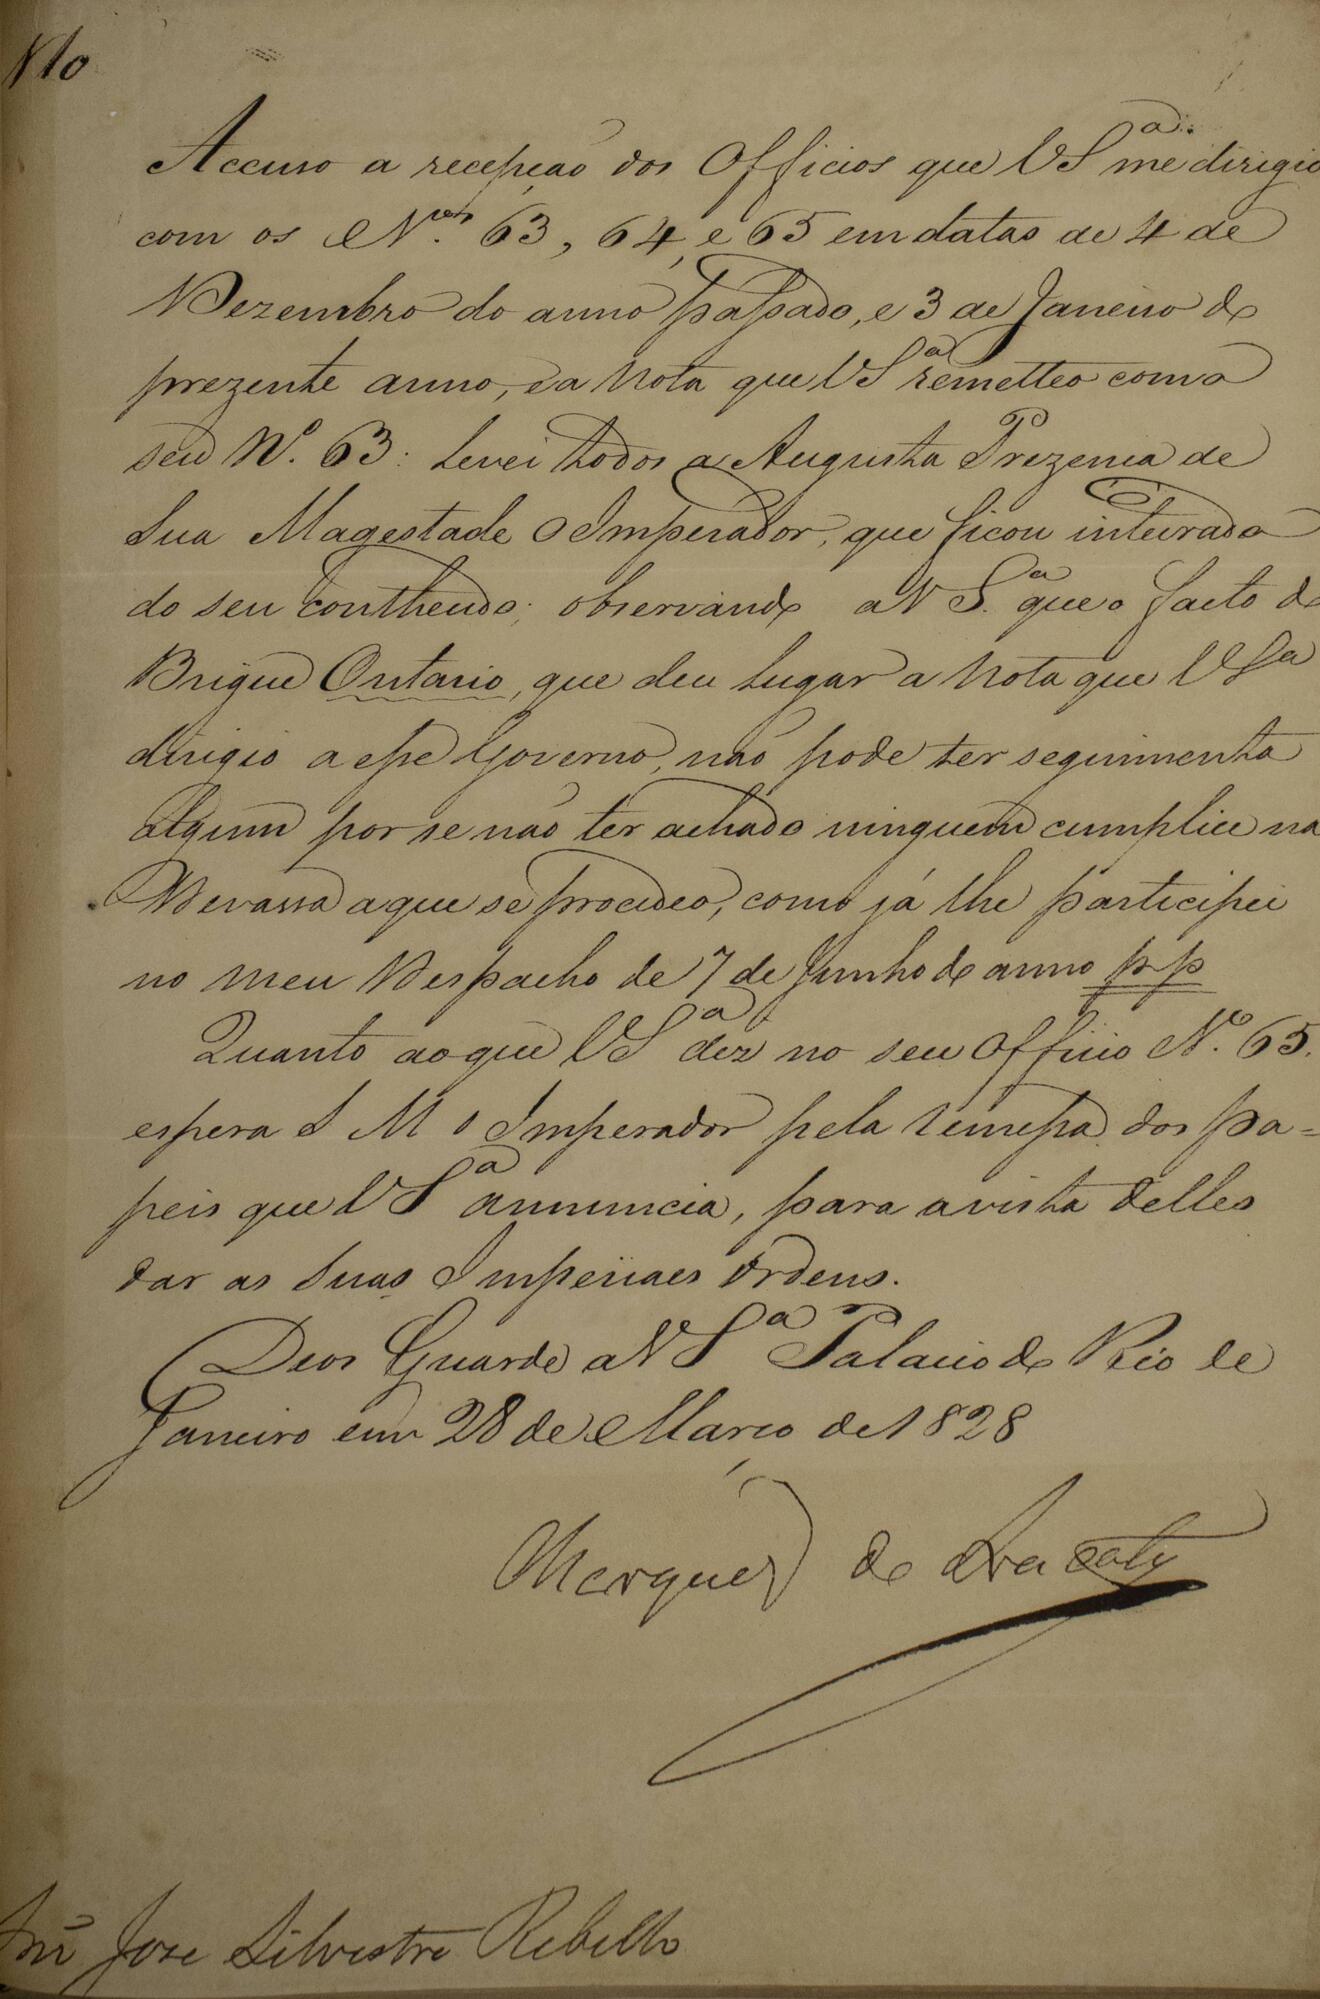 N 10
Accuso a recepção dos Officios que VSª me dirigio
com os Nros 63, 64, e 65 em datas de 4 de
Dezembro do anno passado, e 3 de Janeiro do
prezente anno, e a Nota que VSª remetteo com o
seu Nº. 63: Levei todos a Augusta Prezença de
Sua Magestade o Imperador, que ficou inteirado
do seu contheudo; observando a VSª. que o facto do
Brigue Ontario, que deu lugar a Nota que VSª
dirigio a esse Governo, não pode ter seguimento
algum por se não ter achado ninguem cumplice na
Devassa a que se procedeo, como já lhe participei
no meu Despacho de 7 de Junho do anno pp
Quanto ao que VSª diz no seu Officio Nº. 65.
espera S M o Imperador pela remessa dos pa=
peis que VSª annuncia, para a vista delles
dar as Suas Imperiaes Ordens.
Deos Guarde a VSª Palacio do Rio de
Janeiro em 28 de Março de 1828
Marquez do Aracaty
Snr Jose Silvestre Rebello